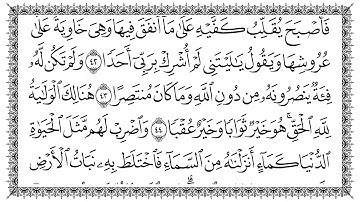 فَأَصْبَحَ يُقَلِّبُ كَفَّيْهِ عَلَىٰ مَآ أَنفَقَ فِيهَا وَهِىَ خَاوِيَةٌ عَلَىٰ
عُرُوشِهَا وَيَقُولُ يَٰلَيْتَنِى لَمْ أُشْرِكْ بِرَبِّىٓ أَحَدًا ٤٢ وَلَمْ تَكُن لَّهُۥ
فِئَةٌ يَنصُرُونَهُۥ مِن دُونِ ٱللَّهِ وَمَا كَانَ مُنتَصِرًا ٤٣ هُنَالِكَ ٱلْوَلَٰيَةُ
لِلَّهِ ٱلْحَقِّ ۚ هُوَ خَيْرٌ ثَوَابًا وَخَيْرٌ عُقْبًا ٤٤ وَٱضْرِبْ لَهُم مَّثَلَ ٱلْحَيَوٰةِ
ٱلدُّنْيَا كَمَآءٍ أَنزَلْنَٰهُ مِنَ ٱلسَّمَآءِ فَٱخْتَلَطَ بِهِۦ نَبَاتُ ٱلْأَرْضِ